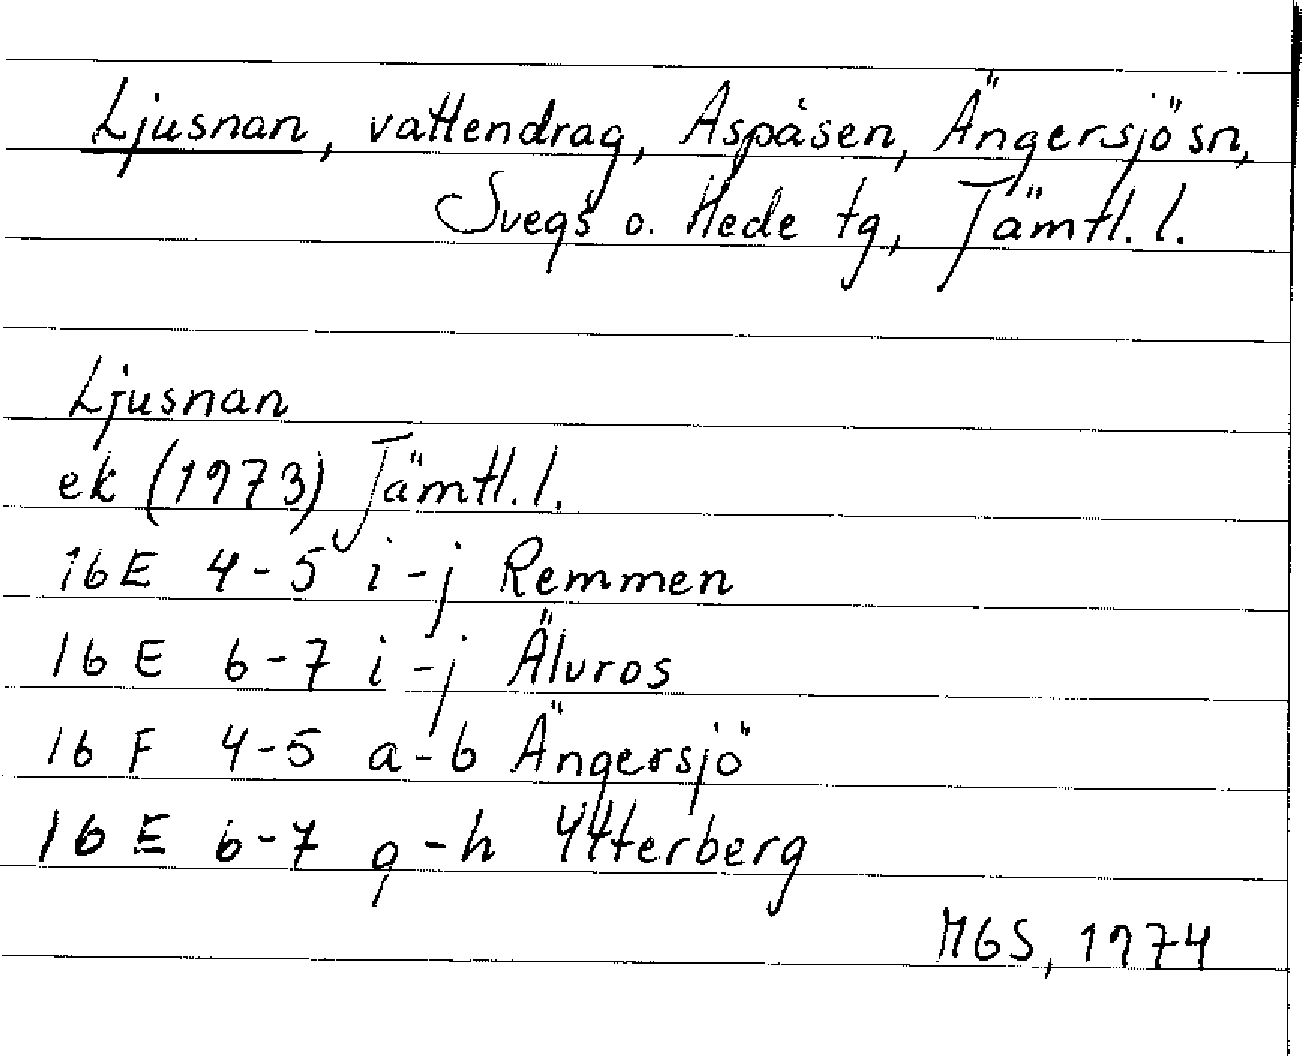 Ljusnan, vattendrag, Aspåsen, Ängersjö sn,
Svegs o. Hede tg, Jämtl. l.
Ljusnan
ek (1973) Jämtl. l.
16E 4-5 i-j Remmen
16 E 6-7 i-j Älvros
16 F 4-5 a-b Ängersjö
16 E 6-7 g-h Ytterberg
MGS, 1974